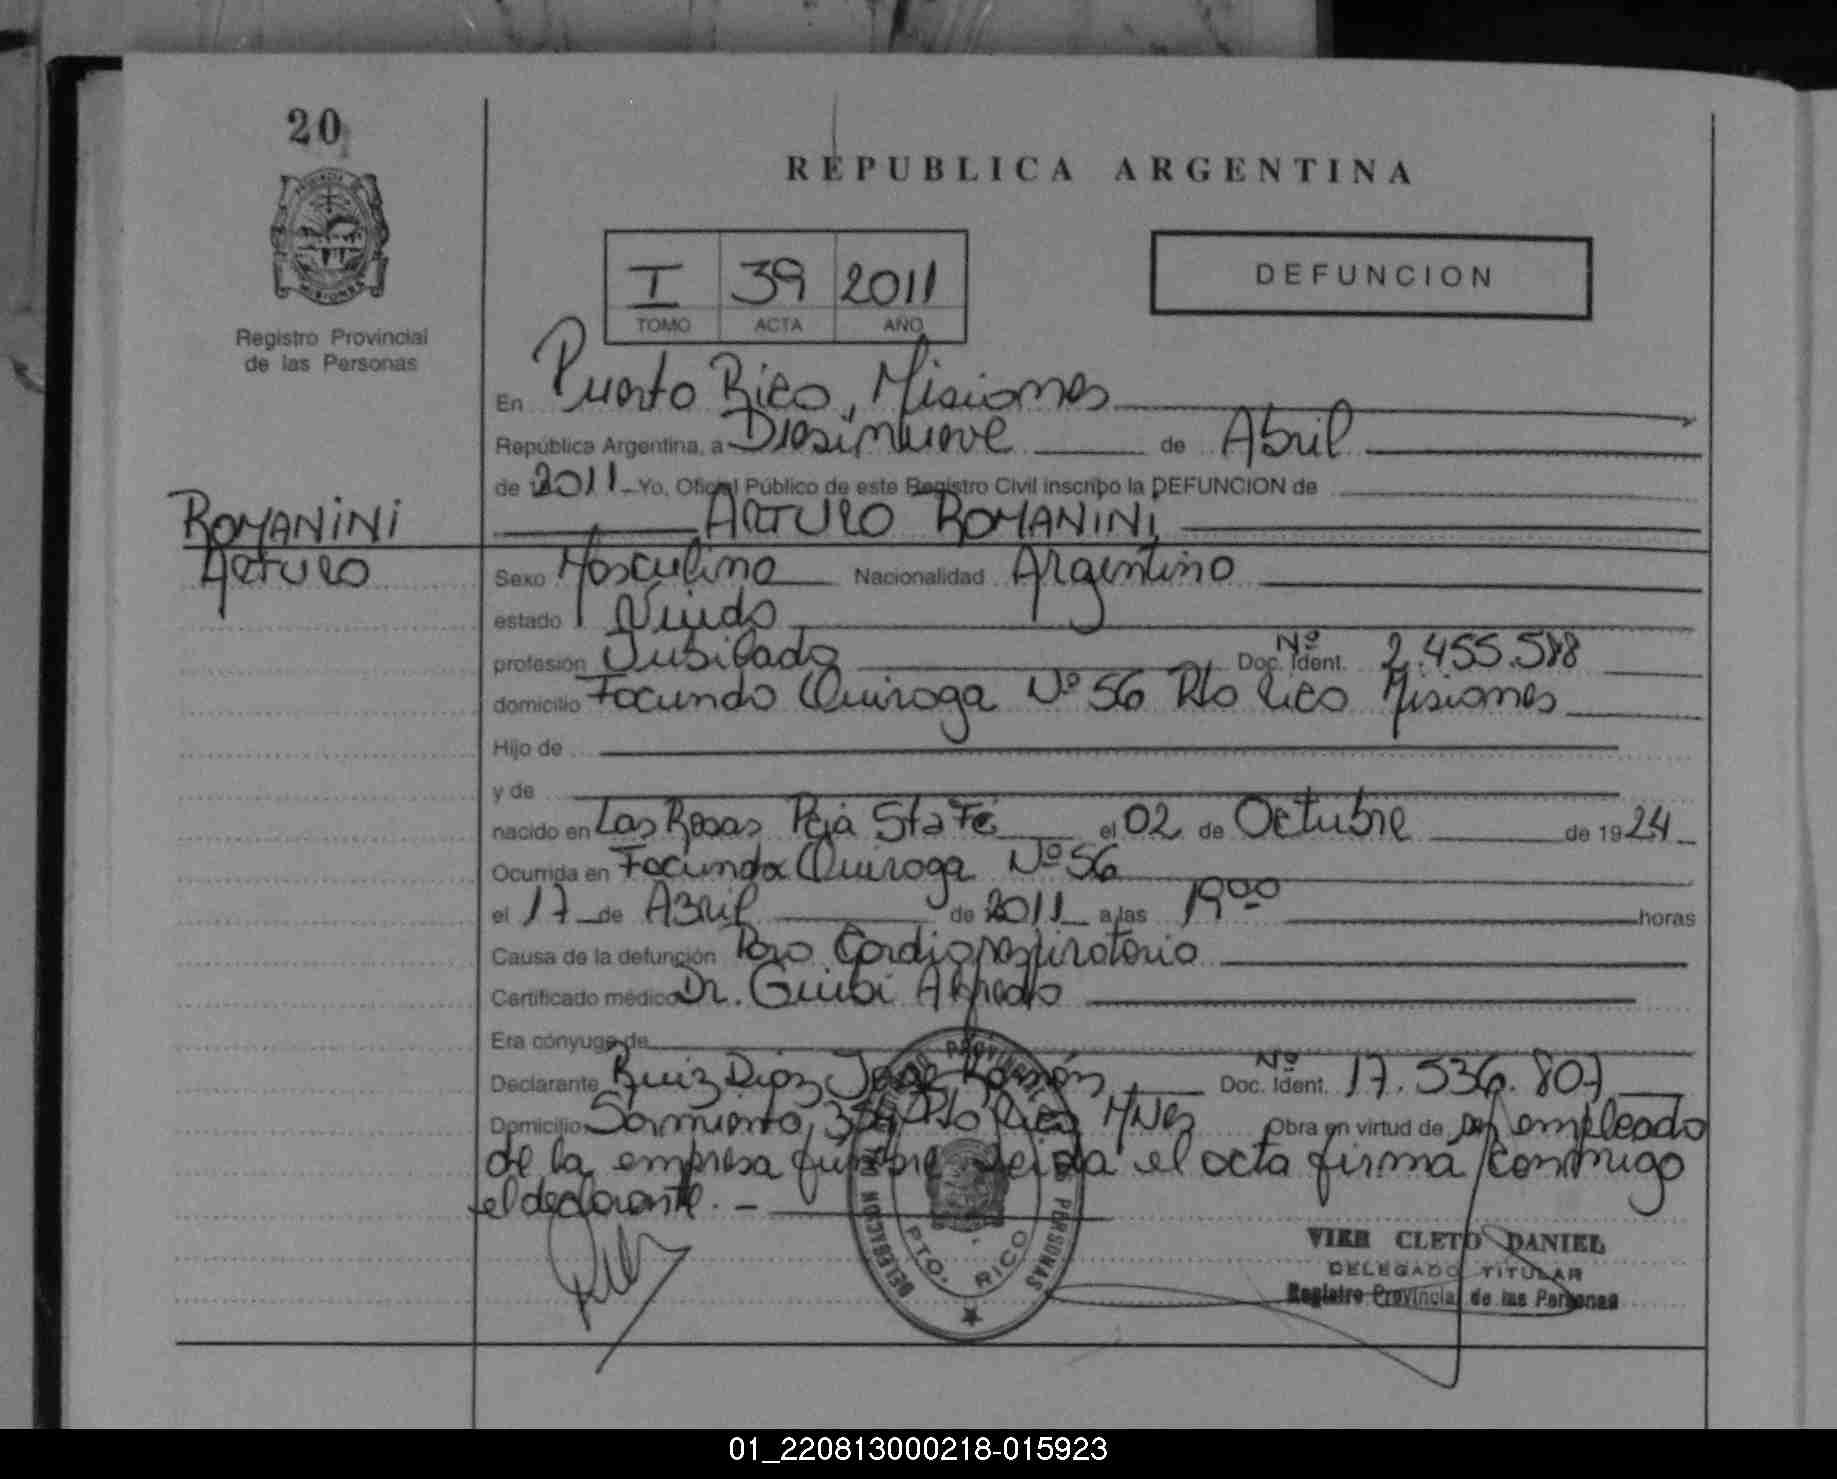 20
REPUBLICA ARGENTINA
I 39 2011
TOMO ACTA AÑO
DEFUNCION
Registro Provincial
de las Personas
En Puerto Rico, Misiones
República Argentina, a Diesinueve de Abril
de 2011 Yo, Oficial Público de este Registro Civil inscribo la DEFUNCION de
ROMANINI ARTURO ROMANINI
ARTURO
Sexo Masculino Nacionalidad Argentino
estado Viudo
profesión Jubilado Doc. Ident. Nº 2.455.588
domicilio Facundo Quiroga Nº 56 Pto Rico Misiones
Hijo de
y de
nacido en Las Rosas Pcia Sta Fé el 02 de Octubre de 1924
Ocurrida en Facundo Quiroga Nº 56
el 17 de Abril de 2011 a las 19 00 horas
Causa de la defunción Paro Cardiorespiratorio
Certificado médico Dr. Alfredo
Era cónyuge de
Declarante Ruiz Diaz Jose Ramón Doc. Ident. Nº 17.536.807
Domicilio Sarmiento Pto Rico Mnes Obra en virtud de ser empleado
de la empresa funebre leida el acta firma conmigo
el declarante. -
DELEGACION PERSONAS
PTO. RICO
VIER CLETO DANIEL
DELEGADO TITULAR
Registro Provincial de las Personas
01_220813000218-015923